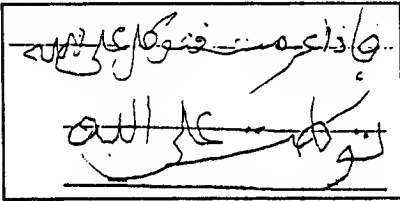 فإذا عزمت فتوكل على الله
توكلت على الله